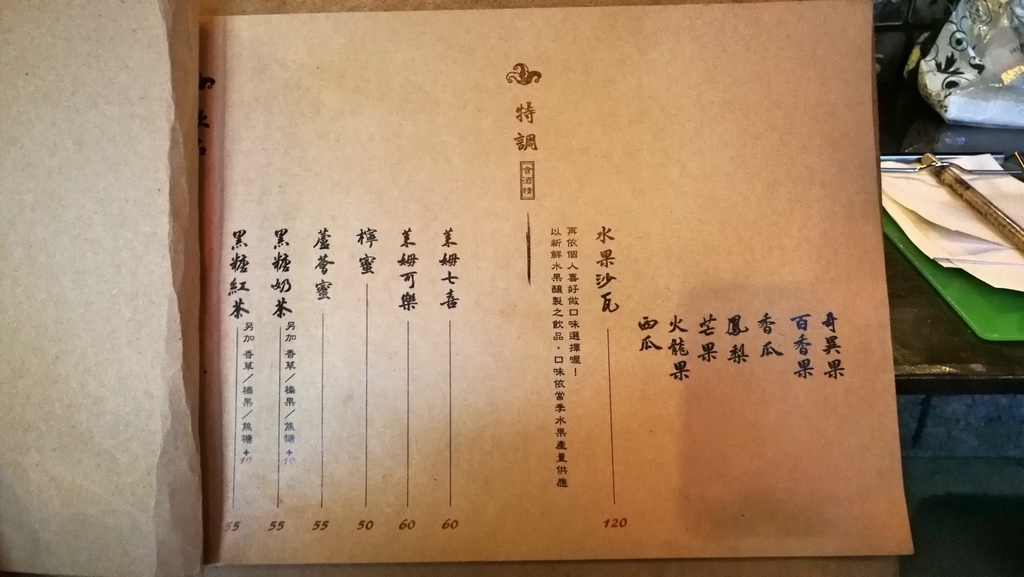 黑糖紅茶 另加 香草／榛果／焦糖 +10 55
黑糖奶茶 另加 香草／榛果／焦糖 +10 55
蘆薈蜜 55
檸蜜 50
萊姆可樂 60
萊姆七喜 60
特調
含酒精
以新鮮水果釀製之飲品，口味依當季水果產量供應
再依個人喜好做口味選擇喔！
水果沙瓦 120
西瓜
火龍果
芒果
鳳梨
香瓜
百香果
奇異果